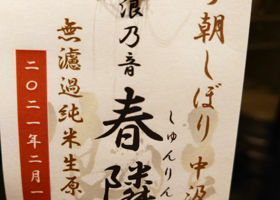 朝しぼり 中汲
浪乃音
春隣
しゅんりん
無濾過純米生原
二〇二一年二月一